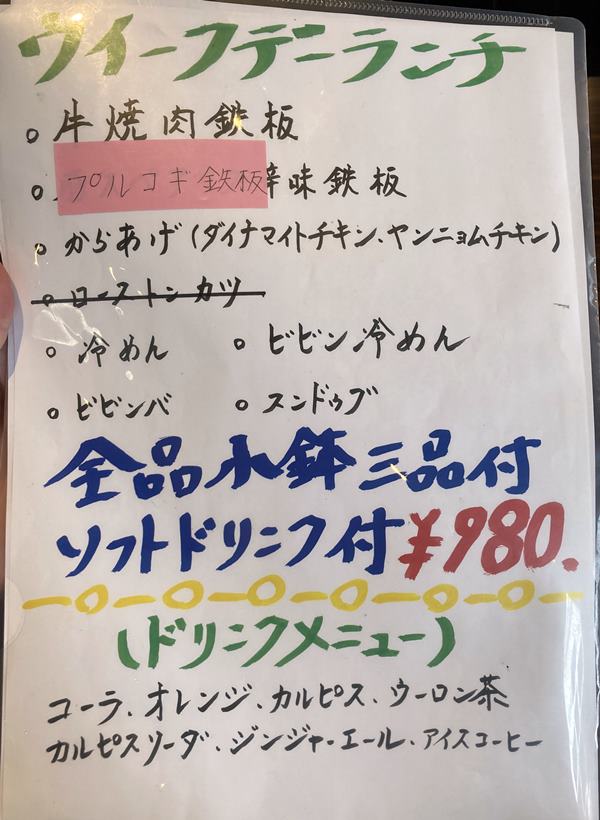 ウィークデーランチ
○ 牛焼肉鉄板
○ プルコギ鉄板 辛味鉄板
○ からあげ(ダイナマイトチキン、ヤンニョムチキン)
○ ローストンカツ
○ 冷めん ○ ビビン冷めん
○ ビビンバ ○ スンドゥブ
全品小鉢三品付
ソフトドリンク付¥980.
(ドリンクメニュー)
コーラ、オレンジ、カルピス、ウーロン茶
カルピスソーダ、ジンジャーエール、アイスコーヒー